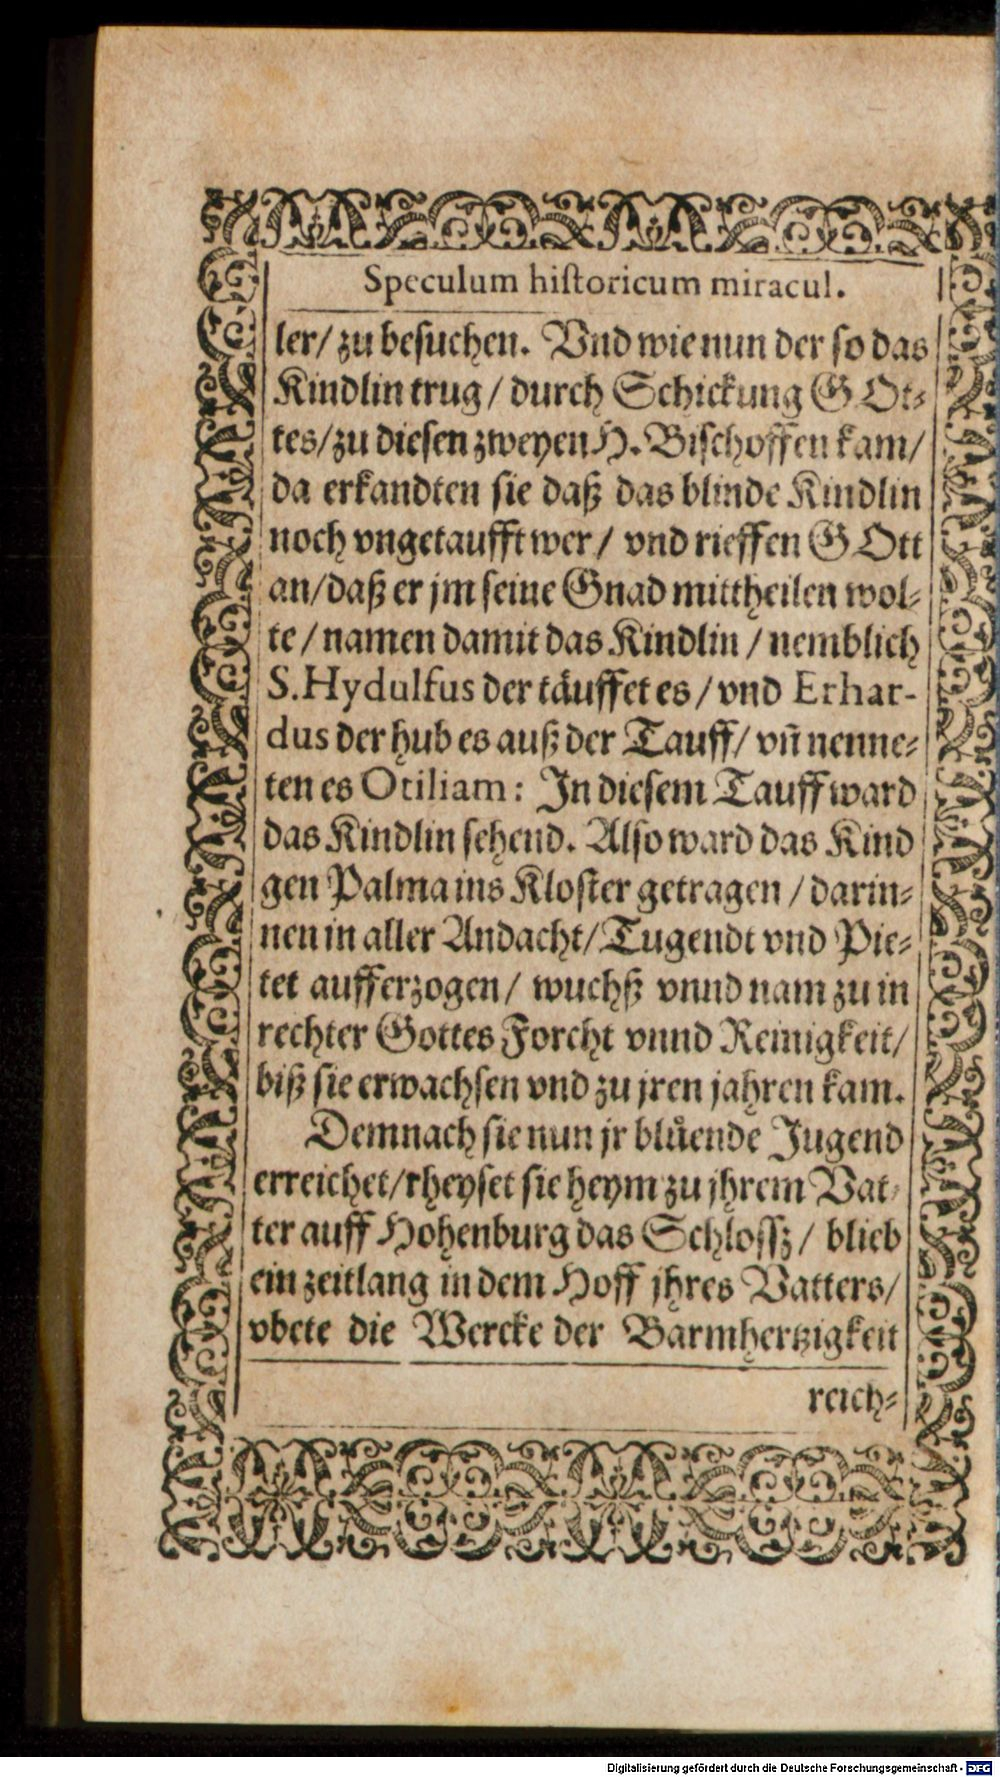 Speculum historicum miracul.
ler/ zu besuchen. Vnd wie nun der so das
Kindlin trug / durch Schickung GOt-
tes/ zu diesen zweyen H. Bischoffen kam/
da erkandten sie daß das blinde Kindlin
noch vngetaufft wer / vnd rieffen GOtt
an/ daß er jm seine Gnad mittheilen wol-
te / namen damit das Kindlin / nemblich
S. Hydulfus der täuffet es / vnd Erhar-
dus der hub es auß der Tauff/ vñ nenne-
ten es Otiliam: In diesem Tauff ward
das Kindlin sehend. Also ward das Kind
gen Palma ins Kloster getragen / darin-
nen in aller Andacht/ Tugendt vnd Pie-
tet aufferzogen / wuchß vnnd nam zu in
rechter Gottes Forcht vnnd Reinigkeit/
biß sie erwachsen vnd zu jren jahren kam.
Demnach sie nun jr blůende Jugend
erreichet/ rheyset sie heym zu jhrem Vat-
ter auff Hohenburg das Schlossz / blieb
ein zeitlang in dem Hoff jhres Vatters/
vbete die Wercke der Barmhertzigkeit
reich-
Digitalisierung gefördert durch die Deutsche Forschungsgemeinschaft - DFG